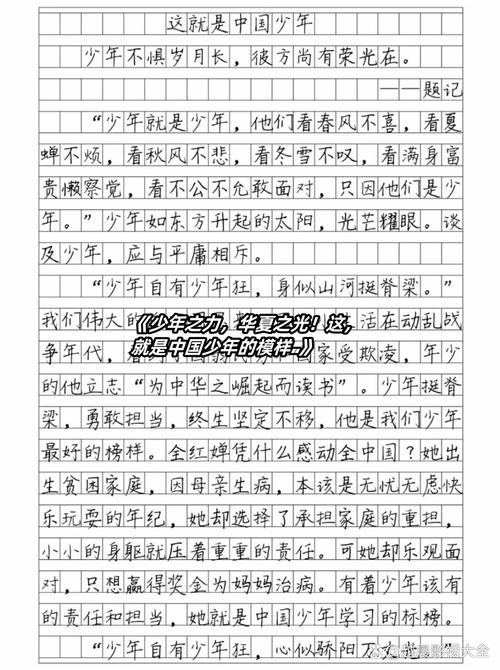 这就是中国少年
少年不惧岁月长，彼方尚有荣光在。
——题记
“少年就是少年，他们看春风不喜，看夏
蝉不烦，看秋风不悲，看冬雪不叹，看满身富
贵懒察觉，看不公不允敢面对，只因他们是少
年。”少年如东方升起的太阳，光芒耀眼。谈
及少年，应与平庸相斥。
“少年自有少年狂，身似山河挺脊梁。”
我们伟大的
活在动乱战
《少年之力，华夏之光！这，
就是中国少年的模样..》
争年代，
家受欺凌，年少
的他立志“为中华之崛起而读书”。少年挺脊
梁，勇敢担当，终生坚定不移，他是我们少年
最好的榜样。全红婵凭什么感动全中国？她出
生贫困家庭，因母亲生病，本该是无忧无虑快
乐玩耍的年纪，她却选择了承担家庭的重担，
小小的身躯就压着重重的责任。可她却乐观面
对，只想赢得奖金为妈妈治病。有着少年该有
的责任和担当，她就是中国少年学习的标榜。
“少年自有少年狂，心似骄阳万丈光。”
影视大全